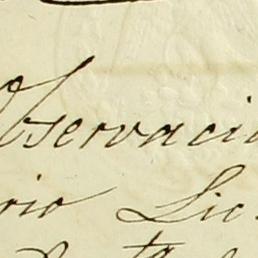 Observaci
rio Lic.